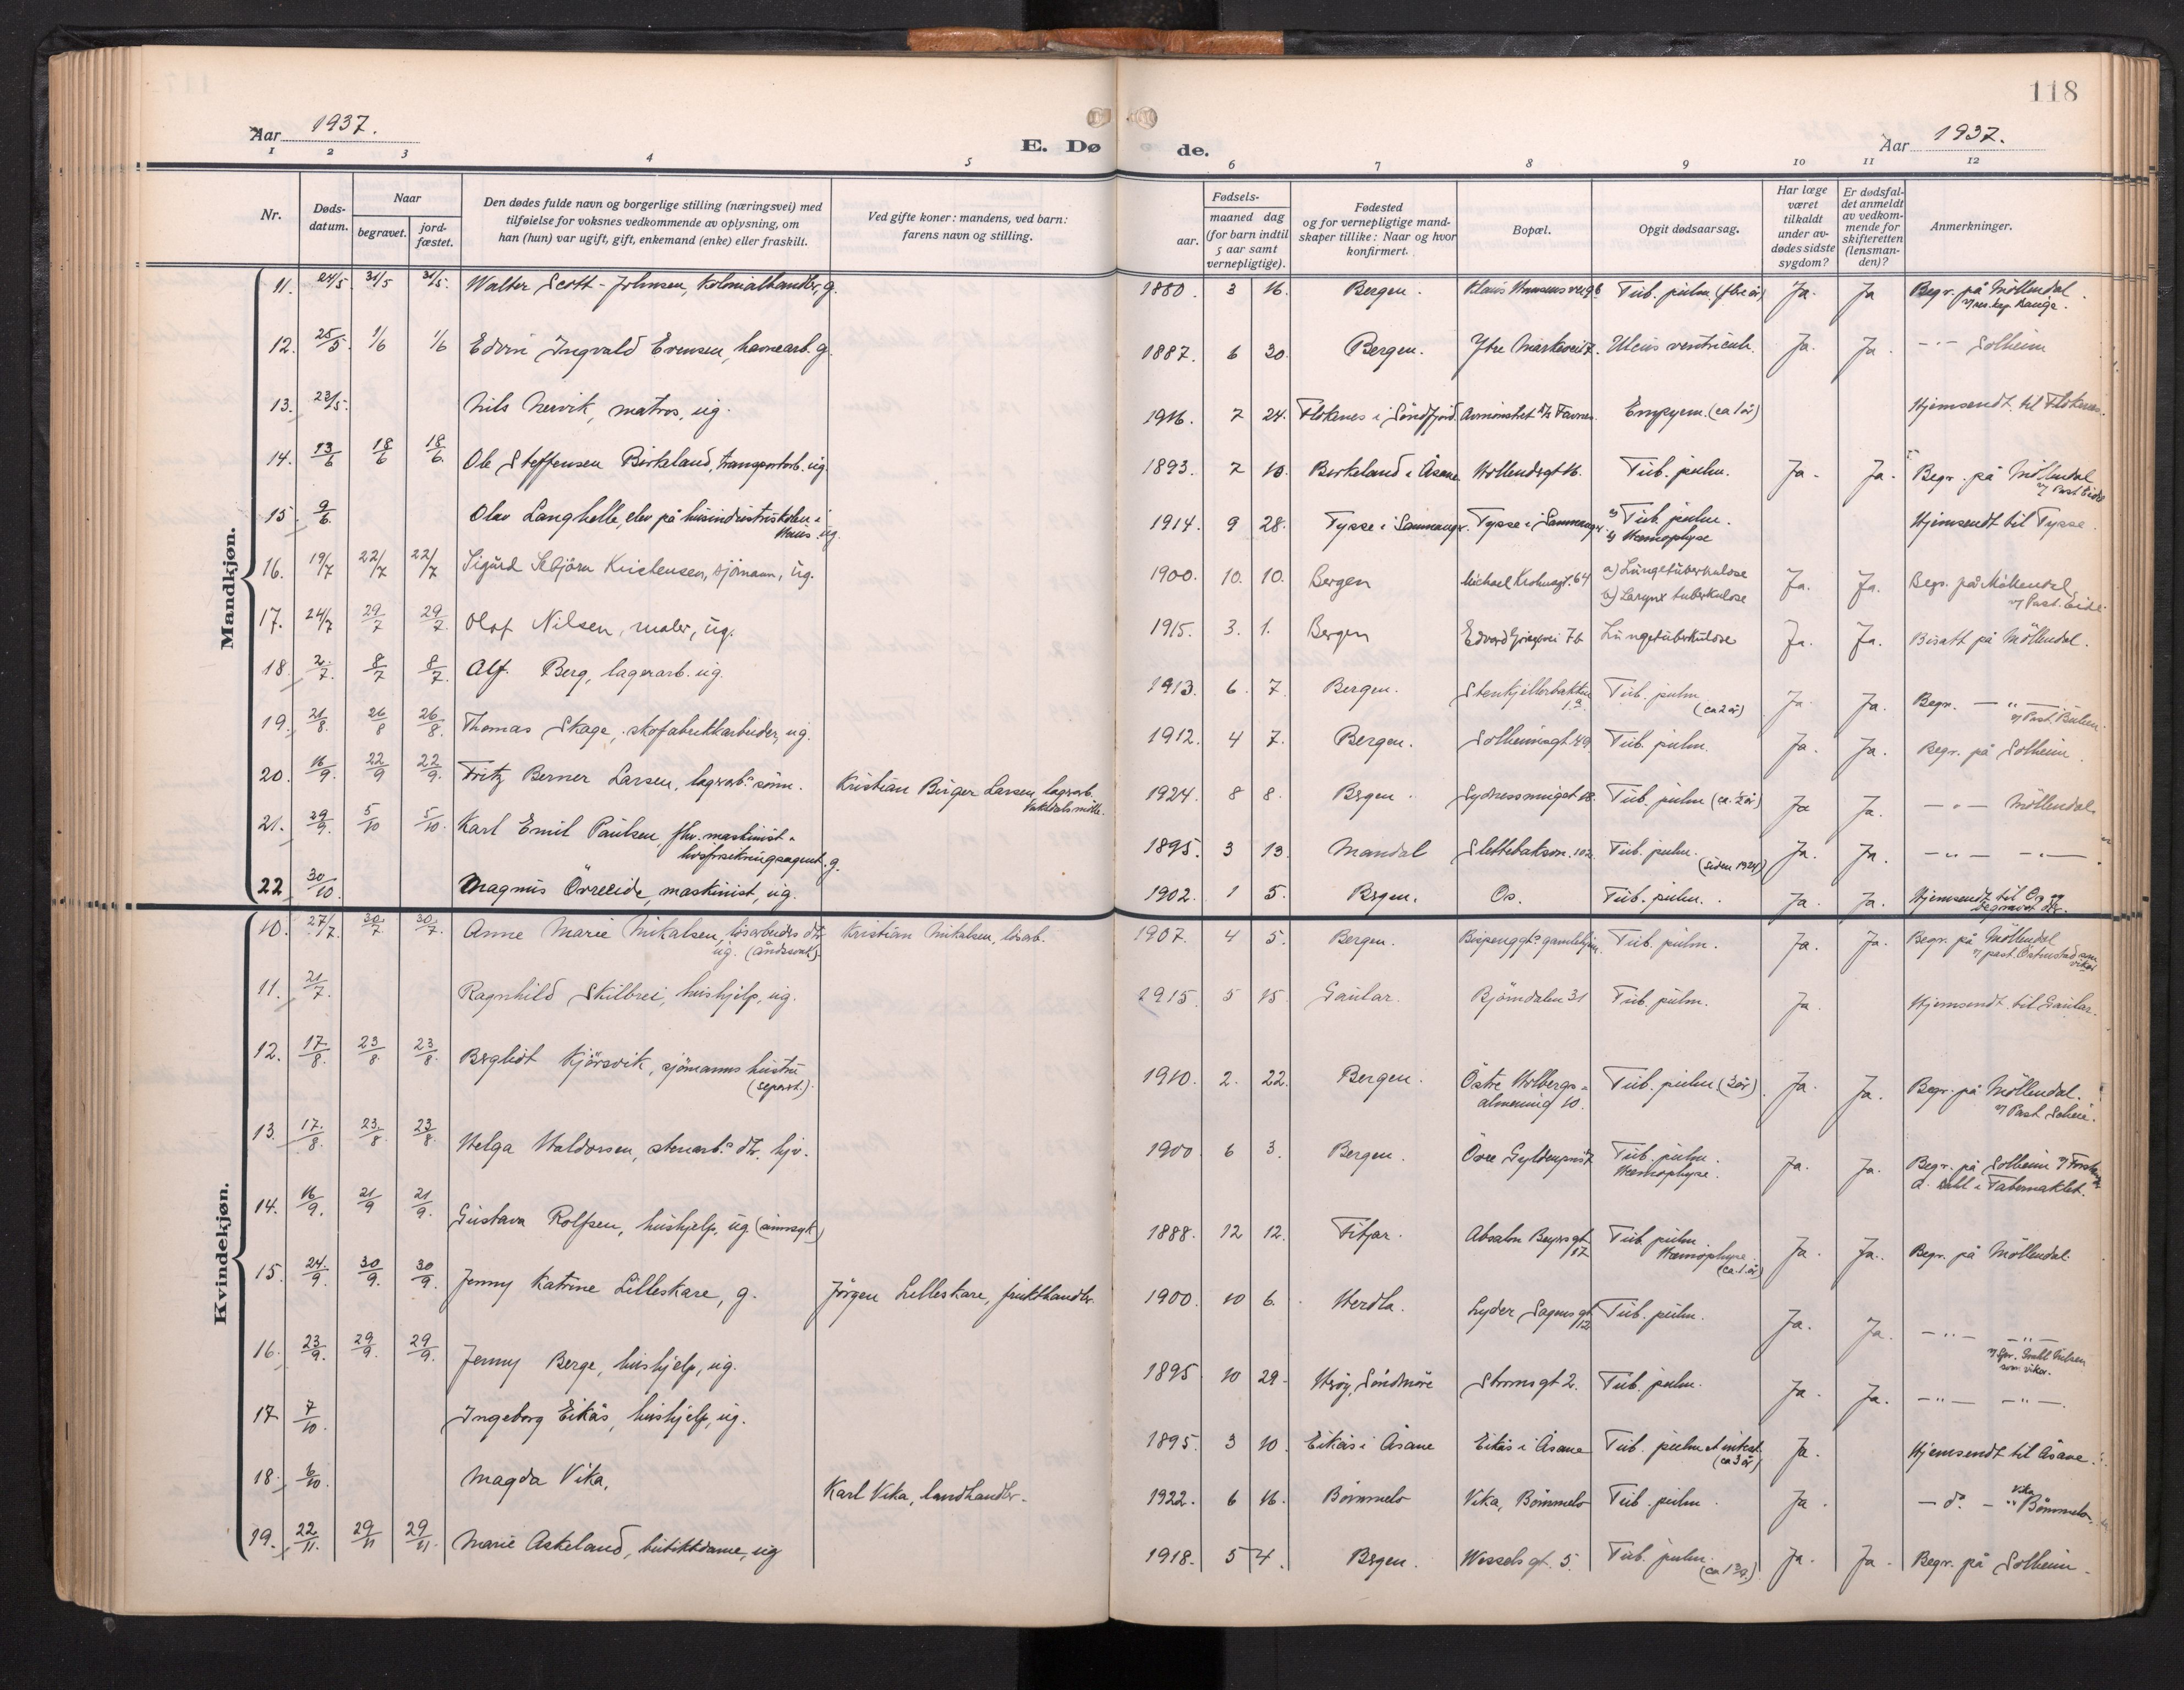 118
Aar 1937.
E. Døde.
Aar 1937.
1 2 3 4 5 6 7 8 9 10 11 12
Nr.
Døds-
datum.
Naar
begravet.
jord-
fæstet.
Den dødes fulde navn og borgerlige stilling (næringsvei) med
tilføielse for voksnes vedkommende av oplysning, om
han (hun) var ugift, gift, enkemand (enke) eller fraskilt.
Ved gifte koner: mandens, ved barn:
farens navn og stilling.
Fødsels-
aar.
maaned dag
(for barn indtil
5 aar samt
vernepligtige).
Fødested
og for vernepligtige mand-
skaper tillike: Naar og hvor
konfirmert.
Bopæl.
Opgit dødsaarsag.
Har læge
været
tilkaldt
under av-
dødes sidste
sygdom?
Er dødsfal-
det anmeldt
av vedkom-
mende for
skifteretten
(lensman-
den)?
Anmerkninger.
Mandkjøn.
11. 24/5 31/5 31/5. Walter Scott-Johnsen, kolonialhandler, g. 1880. 3 16. Bergen. Tub. pulm. Ja. Ja Begr. på Möllendal.
12. 25/5. 1/6 1/6 Edvin Ingvald Evensen, havnearb. g. 1887. 6 20. Bergen. Ytre Markevei 7. Ulcus ventriculi. Ja. Ja. -"- Solheim
13. 23/5. Nils Nervik, matros, ug. 1916. 7 24. Flokenes i Söndfjord. Empyem. (ca 1 år) Hjemsendt til Flokenes.
14. 13/6 18/6 18/6. Ole Steffensen Birkeland, transportarb. ug. 1893. 7 10. Birkeland i Åsane Tub. pulm. Ja. Ja. Begr. på Möllendal
v/ Past. Eide
15. 9/6. Olav Langhelle, elev på husindustriskolen i
Haus. ug. 1914. 9 28. Tysse i Samnanger. Tysse i Samnanger. a) Tub. pulm.
b) Hæmoptyse Hjemsendt til Tysse.
16. 19/7 22/7 22/7 Sigurd Kristensen, sjömann, ug. 1900. 10. 10. Bergen Michael Krohnsgt. 64 a) Lungetuberkulose
b) Larynx tuberkulose Ja. Ja. Begr. på Möllendal
v/ Past. Eide.
17. 24/7 29/7 29/7. Olaf Nilsen, maler, ug. 1915. 3. 1. Bergen Edvard Griegsvei 7b Lungetuberkulose Ja. Ja. Bisatt på Möllendal.
18. 2/7. 8/7 8/7. Alf Berg, lagerarb. ug. 1913. 6. 7. Bergen. Stenkjellerbakken
1a. Tub. pulm
(ca 2 år) Ja. Ja. Begr. -"-
19. 21/8. 26/8 26/8. Thomas Skage, skofabrikkarbeider, ug. 1912. 4 7. Bergen. Solheimsgt 49 Tub. pulm. Ja. Ja. Begr. på Solheim.
20. 16/9. 22/9 22/9. Fritz Berner Larsen, lagerarb.s sönn. Kristian Birger Larsen, lagerarb.
Vaksdals mölle. 1924. 8 8. Bergen. Sydnessmuget 18. Tub. pulm (ca. ½ år) Ja Ja. -"- Möllendal.
21. 29/9. 5/10 5/10. Karl Emil Paulsen, fhv. maskinist
livsforsikringsagent. g. 1895. 3 13. Mandal Tub. pulm.
(siden 1924) Ja. Ja. -"- -"-
22 30/10. Magnus Övreeide, maskinist, ug. 1902. 1 5. Bergen. Os. Tub. pulm. Ja. Ja. Hjemsendt til Os og
begravet der.
Kvindekjøn.
10. 27/7. 30/7 30/7. Anne Marie Mikalsen, lösarbeiders dtr.
ug. (åndssvak) Kristian Mikalsen, lösarb. 1907. 4 5. Bergen. Tub. pulm. Ja. Ja. Begr. på Möllendal
11. 21/7. Ragnhild Skilbrei, hushjelp, ug. 1915. 5 15. Gaular. Björndalen 31 Tub. pulm. Ja Hjemsendt til Gaular.
12. 17/8. 23/8. 23/8. Bergliot Kjörsvik, sjömanns hustru
(separt.). 1910. 2. 22. Bergen. Östre Holbergs-
almenning 10. Tub. pulm. (3 år) Ja. Ja. Begr. på Möllendal.
13. 17./8. 23./8 23/8. Helga Haldorsen, stenarb.s dtr. hjv. 1900. 6 3. Bergen. Tub. pulm.
Hæmoptyse. Ja. Ja. Begr. på Solheim
14. 16/9. 21/9 21/9. Gustava Rolfsen, hushjelp, ug. (sinnsyk) 1888. 12 12. Fitjar. Absalon Beyersgt
17 Tub. pulm
Hæmoptyse.
(ca. 1. år) Ja. Ja. Begr. på Möllendal.
15. 24./9. 30/9. 30/9. Jenny Katrine Lilleskare, g. Jörgen Lilleskare, frukthandler. 1900. 10 6. Herdla. Lyder Sagensgt
12 Tub. pulm. Ja. Ja. -"- -"-
16. 23/9. 29/9. 29/9. Jenny Berge, hushjelp, ug. 1895 10 29. Heröy, Söndmöre Strömsgt 2. Tub. pulm. Ja. Ja. -"- -"-
17 7/10. Ingeborg Eikås, hushjelp, ug. 1895. 3 10. Eikås i Åsane Eikås i Åsane Tub. pulm et intest.
(ca 3 år) Ja. Hjemsendt til Åsane.
18. 6/10. Magda Vika, Karl Vika, landhandler. 1922. 6 16. Bömmelo Vika, Bömmelo Tub. pulm. Ja. - do. - " Vika Bömmelo.
19. 22/11. 29/11 29/11. Marie Askeland, butikkdame, ug 1918. 5 4. Bergen. Wesselsgt. 5. Tub. pulm. Ja. Ja. Begr. på Solheim.